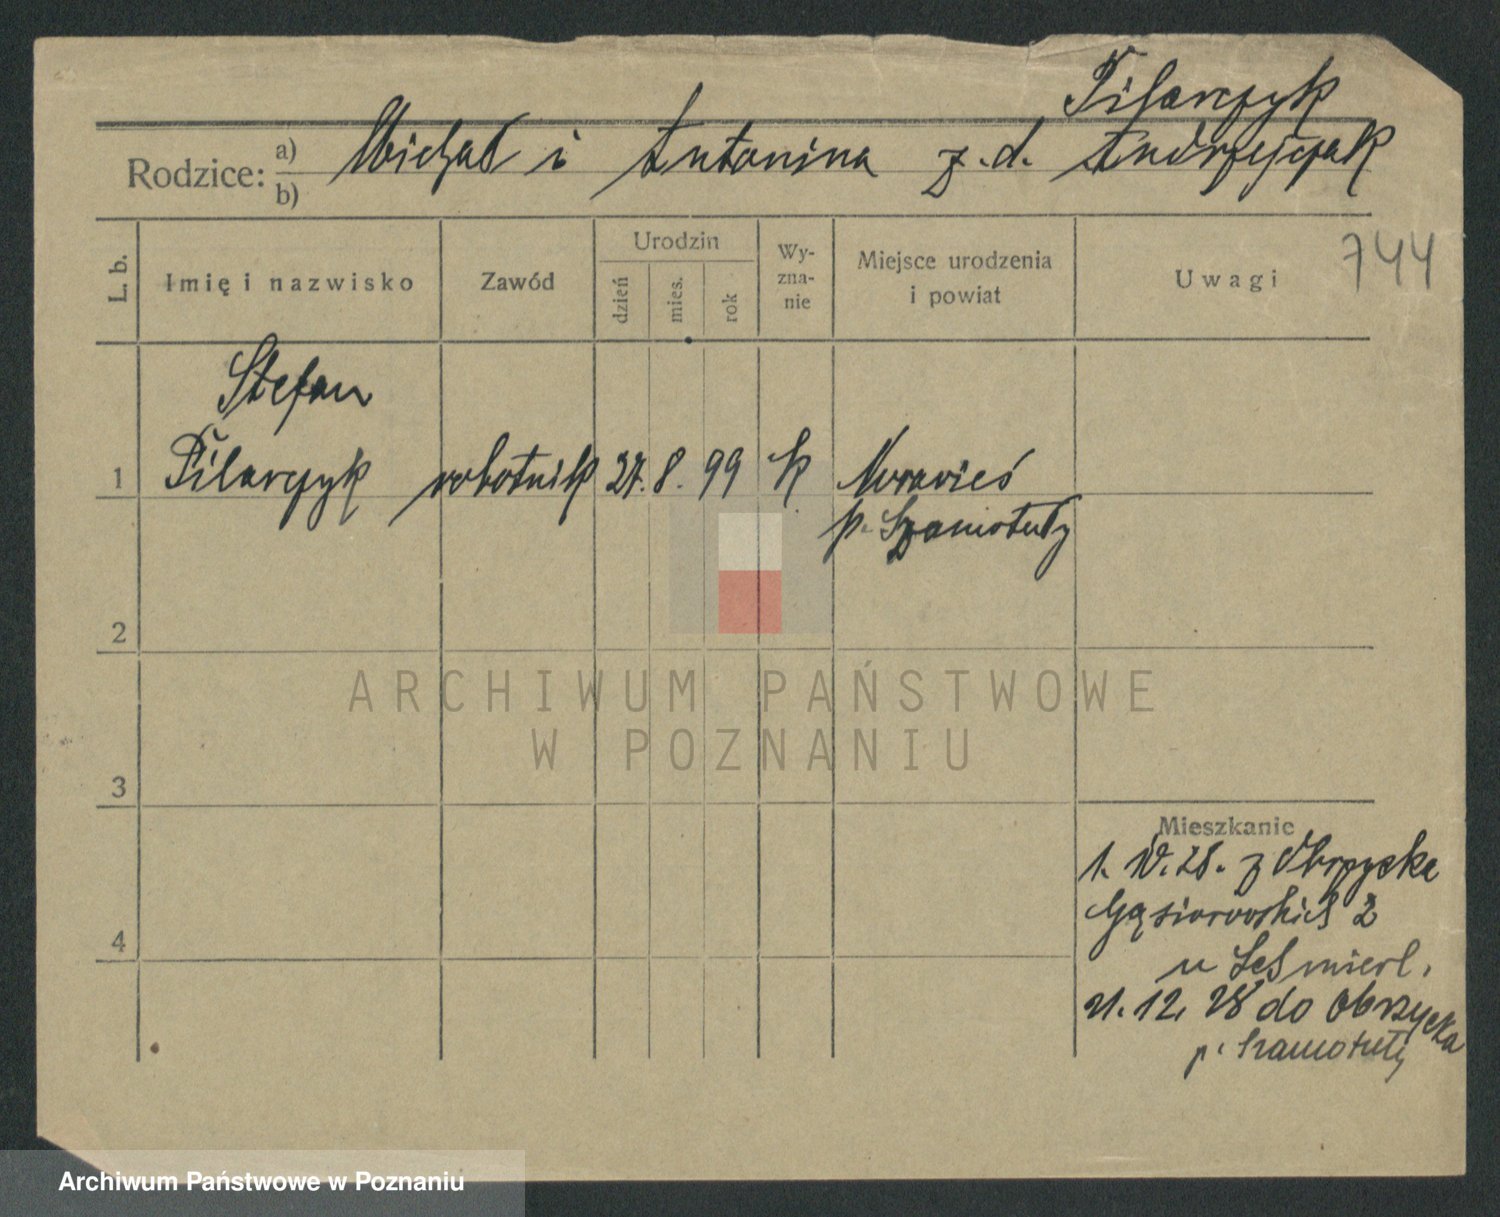 Pilarczyk
Rodzice: a) b) Michał i Antonina z. d. Andrzejczak
744
L. b.
Imię i nazwisko
Zawód
Urodzin
dzień
mies.
rok
Wy-
zna-
nie
Miejsce urodzenia
i powiat
Uwagi
Stefan
1 Pilarczyk robotnik 27. 8. 99 k
p. Szamotuły
2
3
4
ARCHIWUM PAŃSTWOWE
W POZNANIU
Mieszkanie
1. 10. 28. z Obrzycka
Gąsiorowskich 2
u
21. 12. 28 do Obrzycka
p. Szamotuły
Archiwum Państwowe w Poznaniu